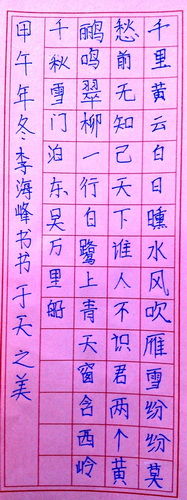 千里黄云白日曛水风吹雁雪纷纷莫
愁前无知己天下谁人不识君两个黄
鹂鸣翠柳一行白鹭上青天窗含西岭
千秋雪门泊东吴万里船
甲午年冬李海峰书书于天之美